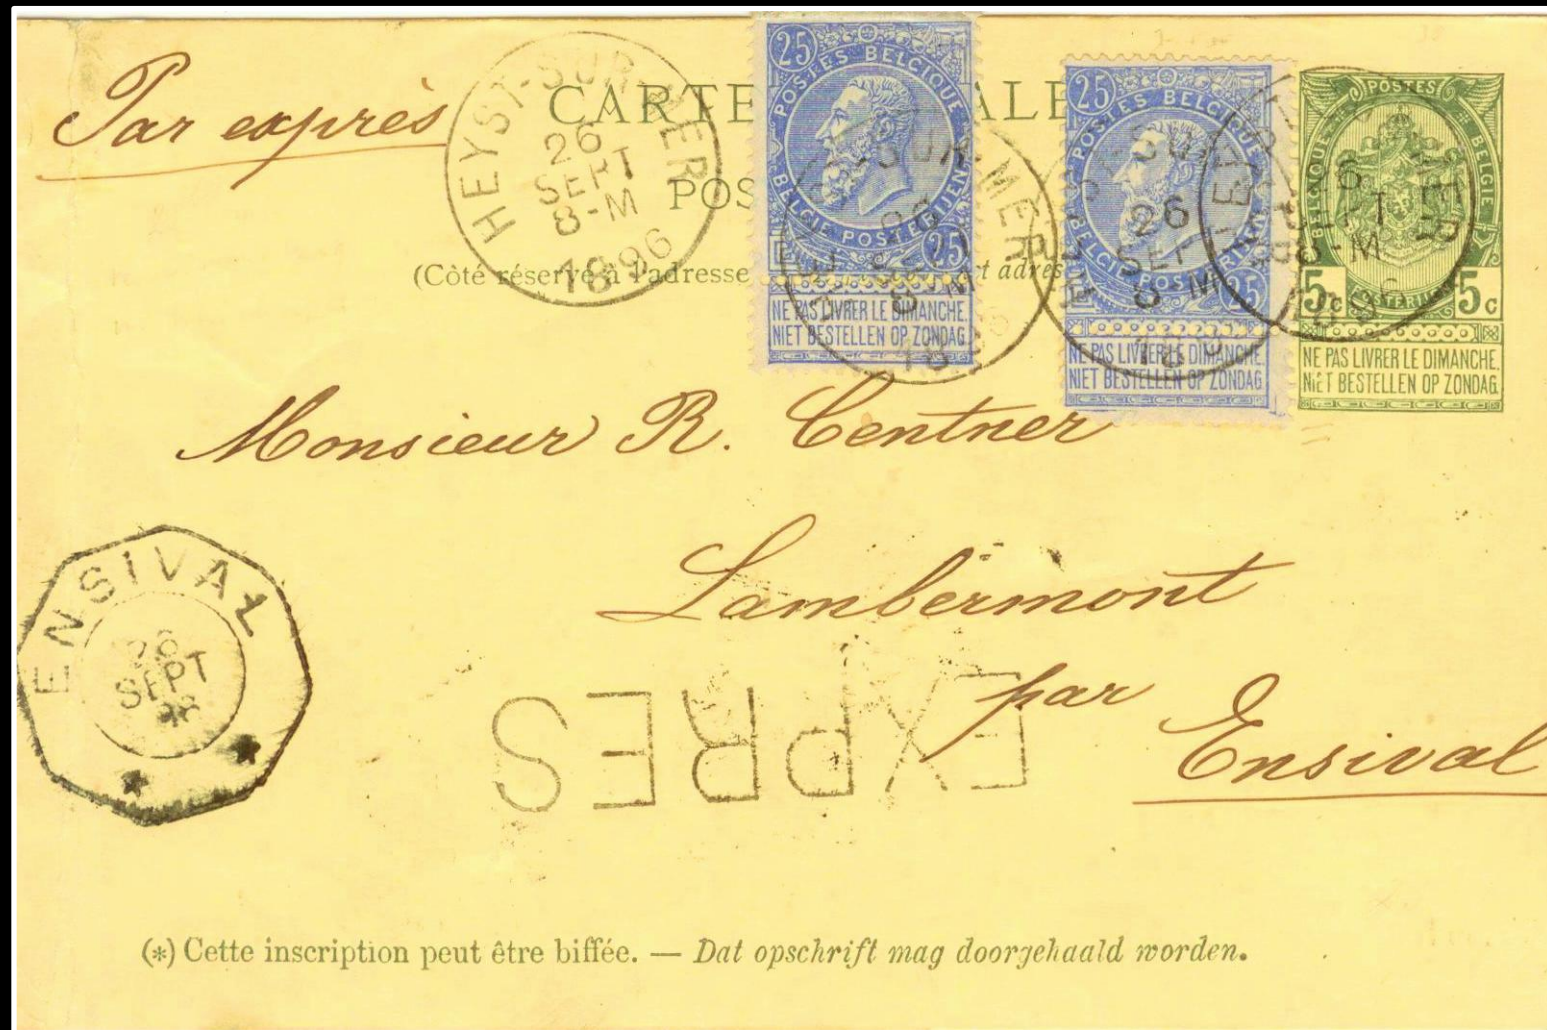 Par exprès
CARTE
POS
(Côté réservé à l'adresse
HEYST-SUR-MER
26
SEPT
8-M
1896
25
POSTES BELGIQUE
BELGIE POSTERIJEN
25
NE PAS LIVRER LE DIMANCHE.
NIET BESTELLEN OP ZONDAG
SUR-MER
25
POSTES BELGIQUE
BELGIE POSTERIJEN
25
NE PAS LIVRER LE DIMANCHE.
NIET BESTELLEN OP ZONDAG
26
POSTES
BELGIQUE
BELGIE
5c
5c
NE PAS LIVRER LE DIMANCHE.
NIET BESTELLEN OP ZONDAG.
Monsieur R. Centner
Lambermont
par
Ensival
ENSIVAL
26
SEPT
EXPRES
(*) Cette inscription peut être biffée. — Dat opschrift mag doorgehaald worden.